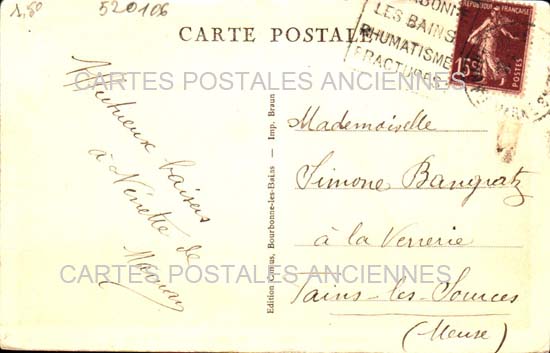 1,50
520106
CARTE POSTALE
LES BAINS
RHUMATISME
FRACTURES
REPUBLIQUE FRANCAISE
15c
POSTES
CARTES POSTALES ANCIENNES
baisers
à Nénette de
Maman
Edition Camus, Bourbonne-les-Bains — Imp. Braun
Mademoiselle
Simone Bangratz
à la Verrerie
Vains-les-Sources
(Meuse)
CARTES POSTALES ANCIENNES